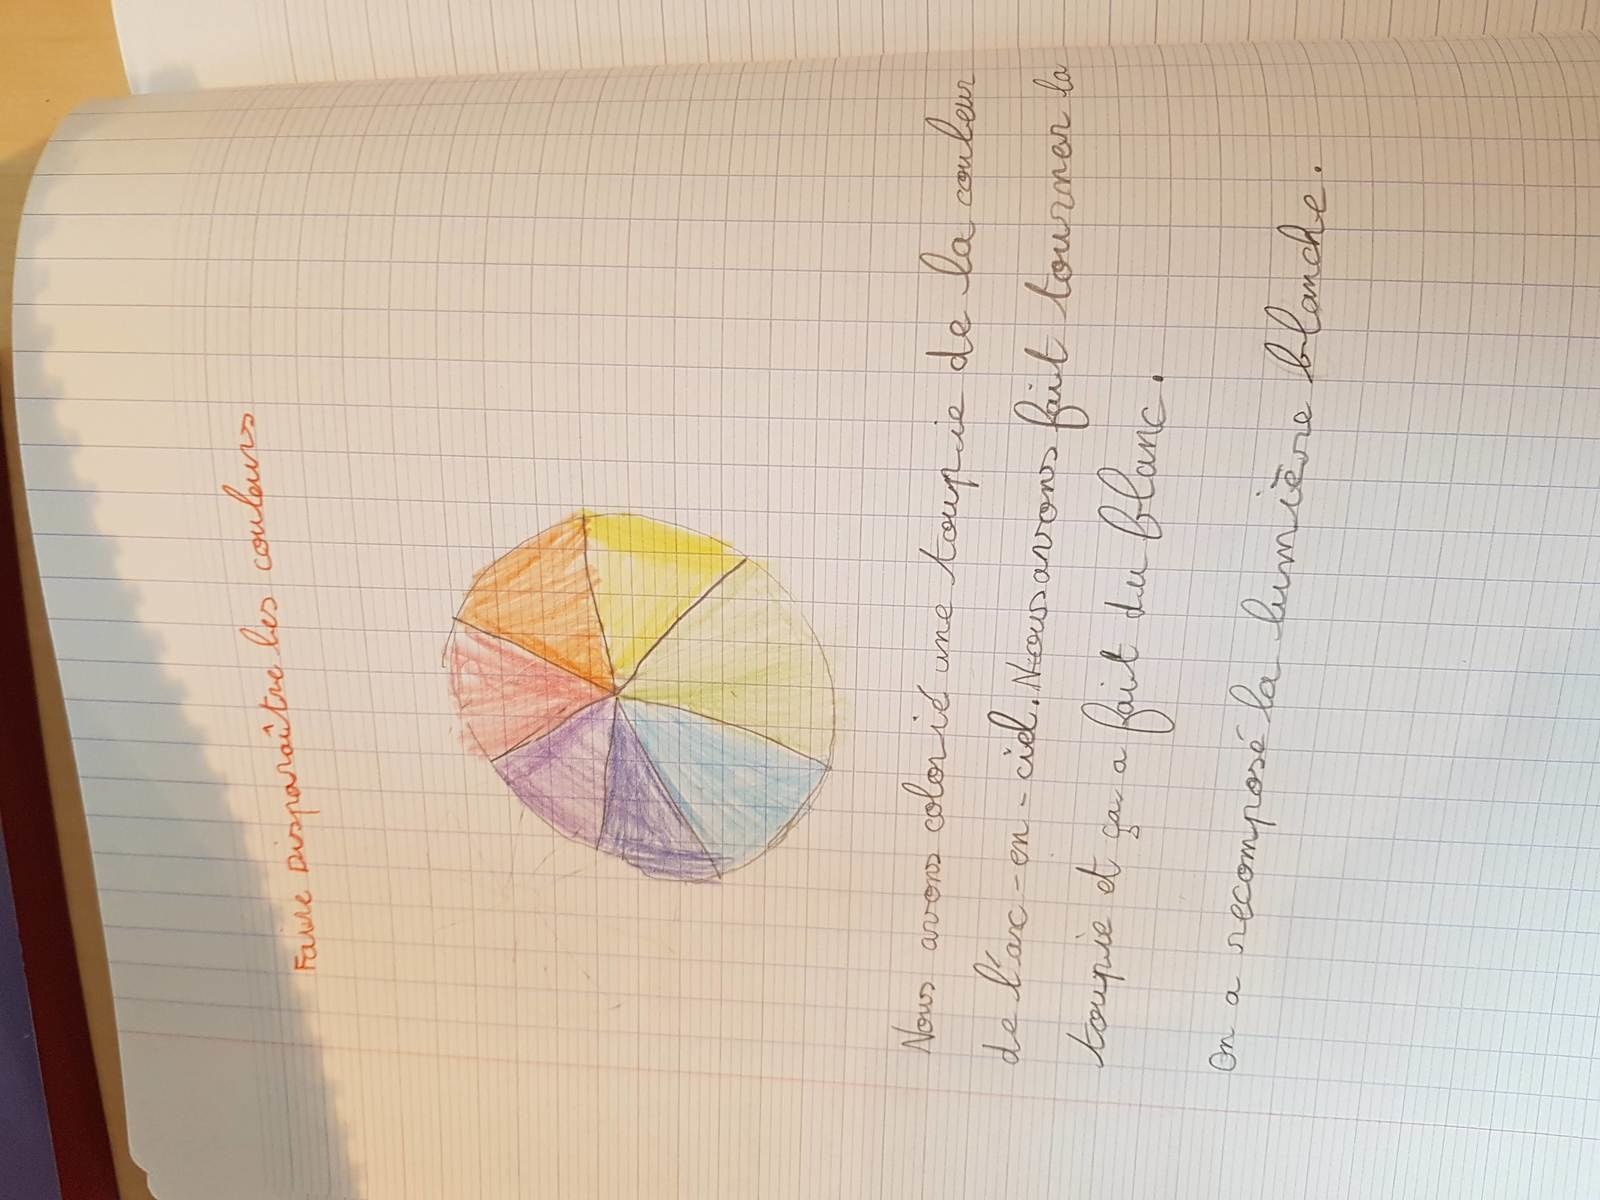 Faire disparaître les couleurs
Nous avons colorié une toupie de la couleur
de l'arc-en-ciel. Nous avons fait tourner la
toupie et ça a fait du blanc.
On a recomposé la lumière blanche.